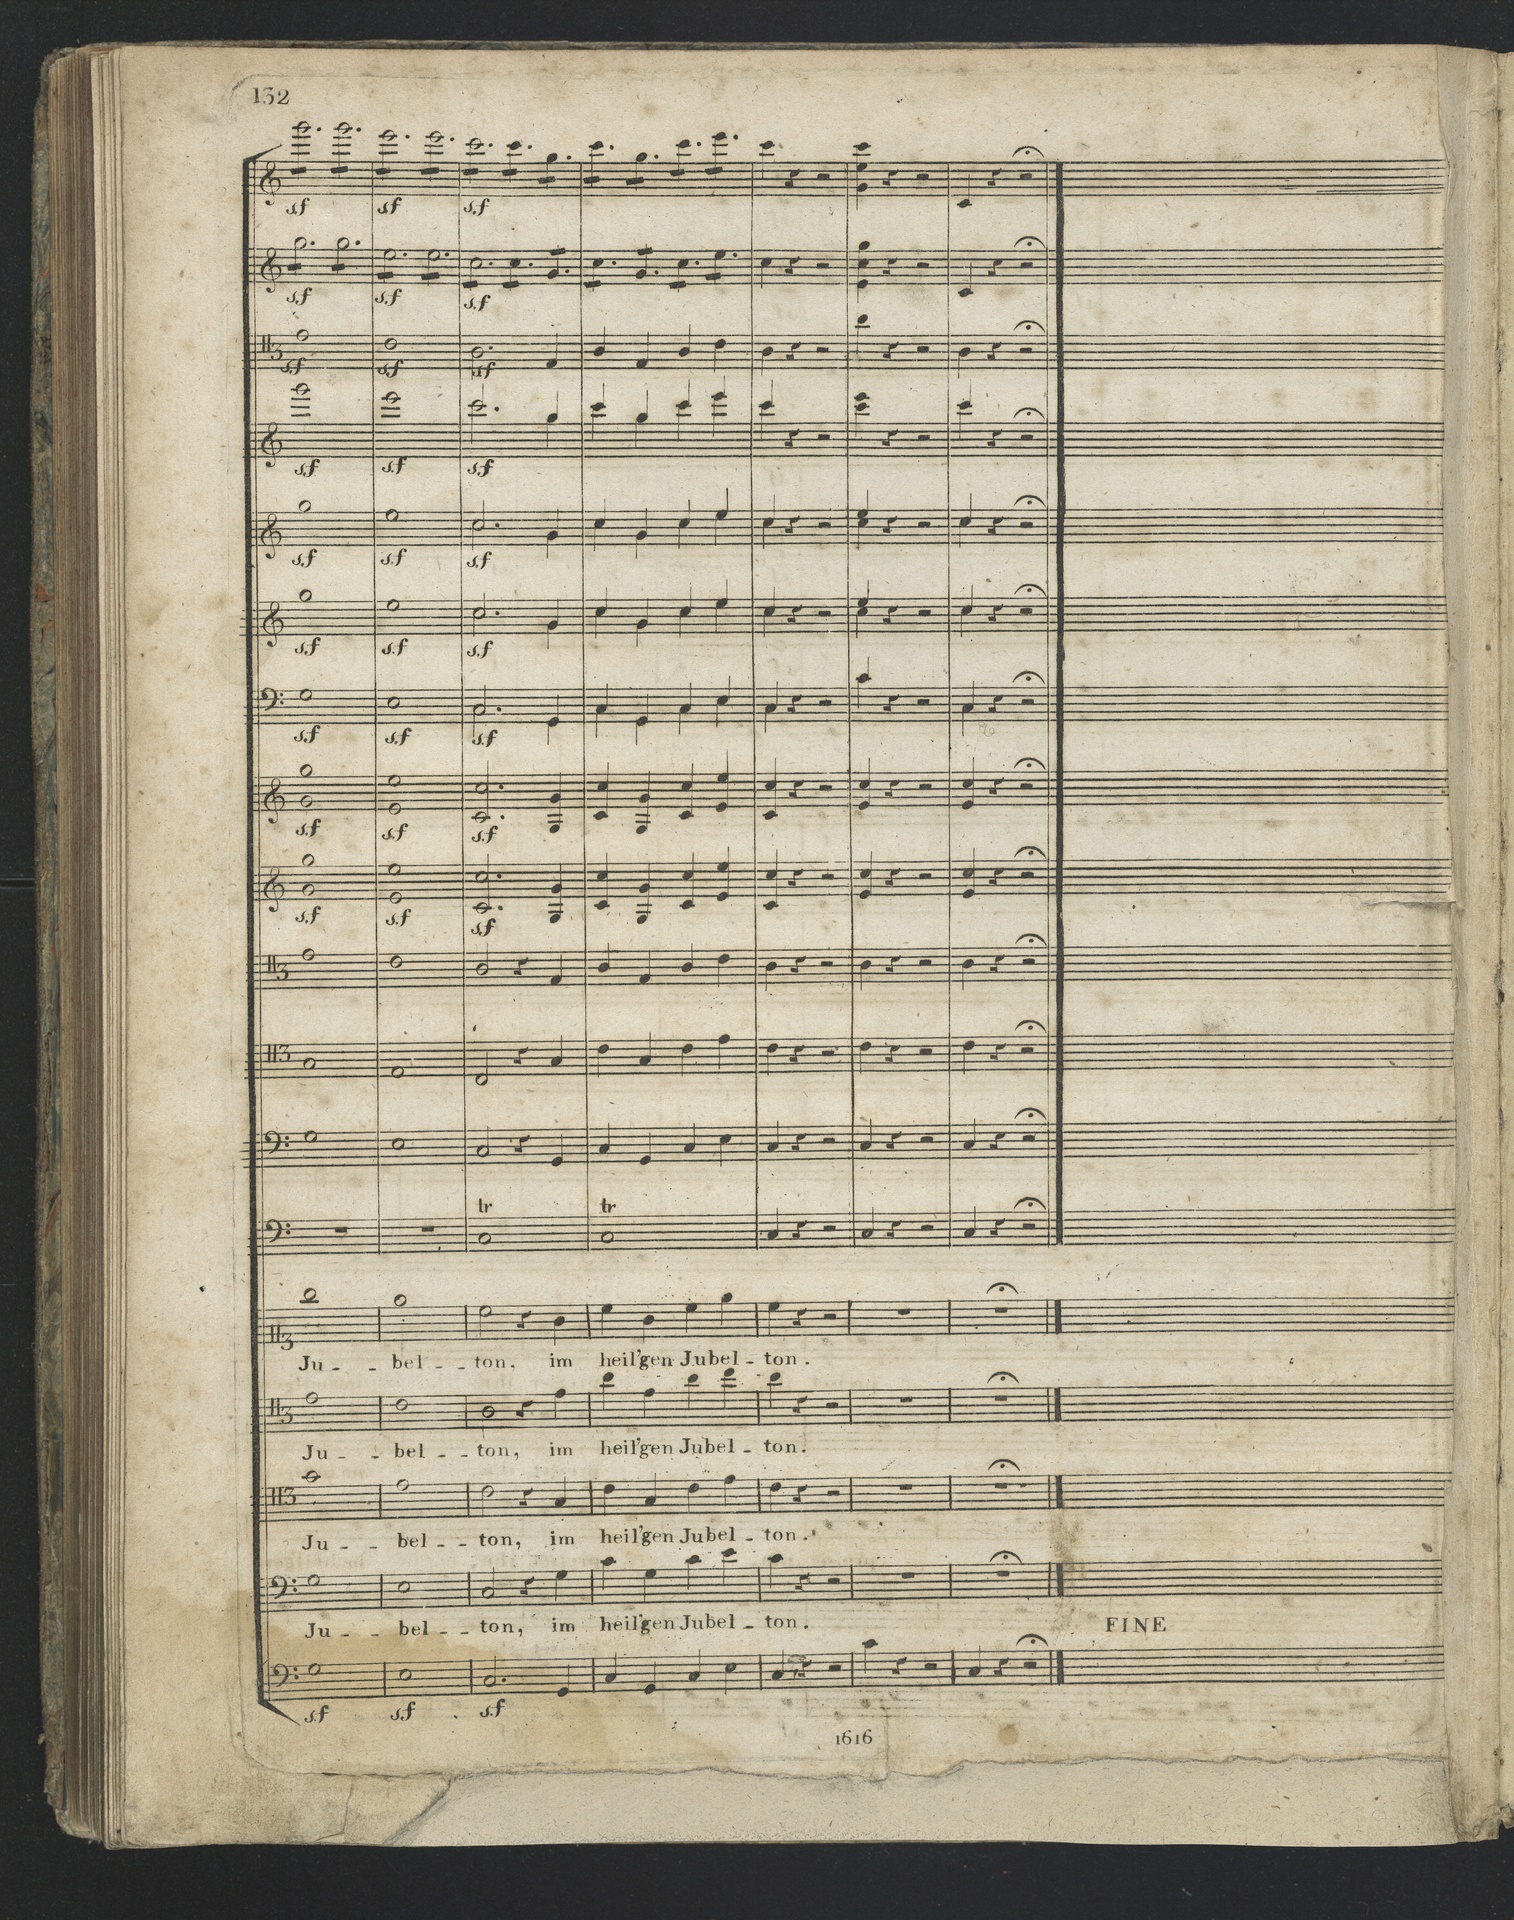 132
s.f s.f s.f
s.f s.f s.f
s.f s.f s.f
s.f s.f s.f
s.f s.f s.f
s.f s.f s.f
s.f s.f s.f
s.f s.f s.f
s.f s.f s.f
tr tr
Ju - - bel - - ton, im heil'gen Jubel - ton.
Ju - - bel - - ton, im heil'gen Jubel - ton.
Ju - - bel - - ton, im heil'gen Jubel - ton.
Ju - - bel - - ton, im heil'gen Jubel - ton.
FINE
s.f s.f s.f
1616